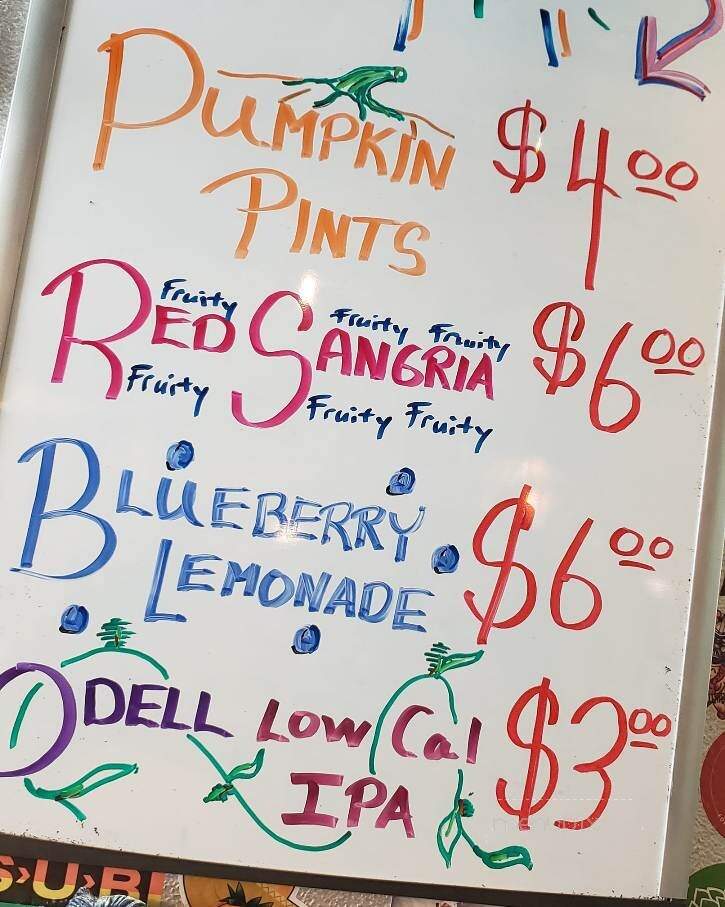 PUMPKIN $4.00
PINTS
Fruity Fruity Fruity
RED SANGRIA $6.00
Fruity Fruity Fruity
BLUEBERRY $6.00
LEMONADE
ODELL LOW Cal $3.00
IPA
S›U›B